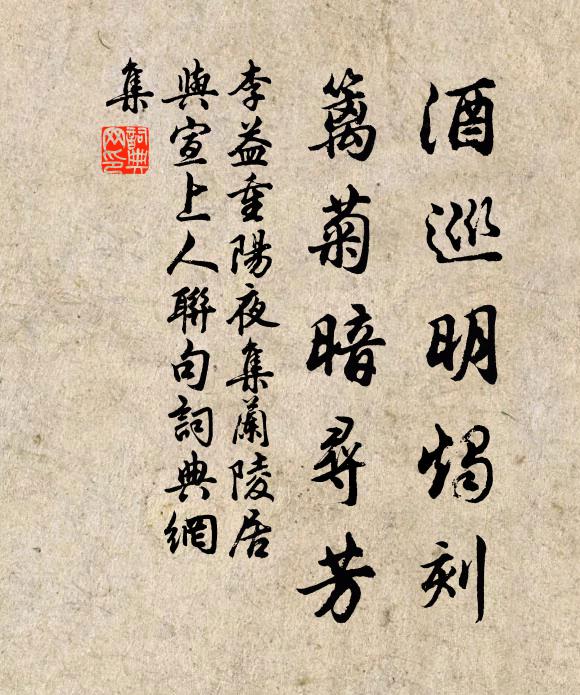 酒巡明燭刻
籬菊暗尋芳
李益重陽夜集蘭陵居
與宣上人聯句詞典網
集
詞典網印